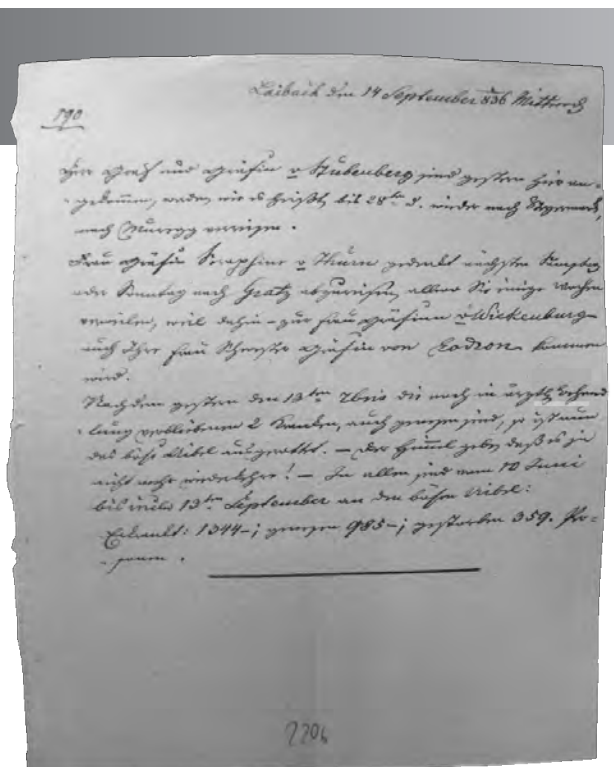 Laibach den 14 September 836 Mittwoch
190
Herr Graf und Gräfin v Stubenberg sind gestern hier an-
gekommen, werden wie es heißt, bis 28ten d. wieder nach Steyermark,
nach Muregg verreisen.
Frau Gräfin Seraphine v Thurn gedenkt nächsten Samstag
oder Sonntag nach Gratz abzureisen, allwo Sie einige Wochen
verweilen, weil dahin - zur Frau Gräfinn v Wickenburg
auch Ihre Frau Schwester Gräfin von Lodron kommen
wird.
Nachdem gestern den 13ten 7bris die noch in ärztl. Behand-
lung verbliebenen 2 Kranken, auch genesen sind, so ist nun
das böse Uibel ausgerottet. - Der Himmel gebe, daß es ja
nicht mehr wiederkehre! - In allen sind vom 10 Juni
bis 13ten September an den bösen Uibel:
Erkrankt: 1344-; genesen 985-; gestorben 359. Per-
sonen.
2206